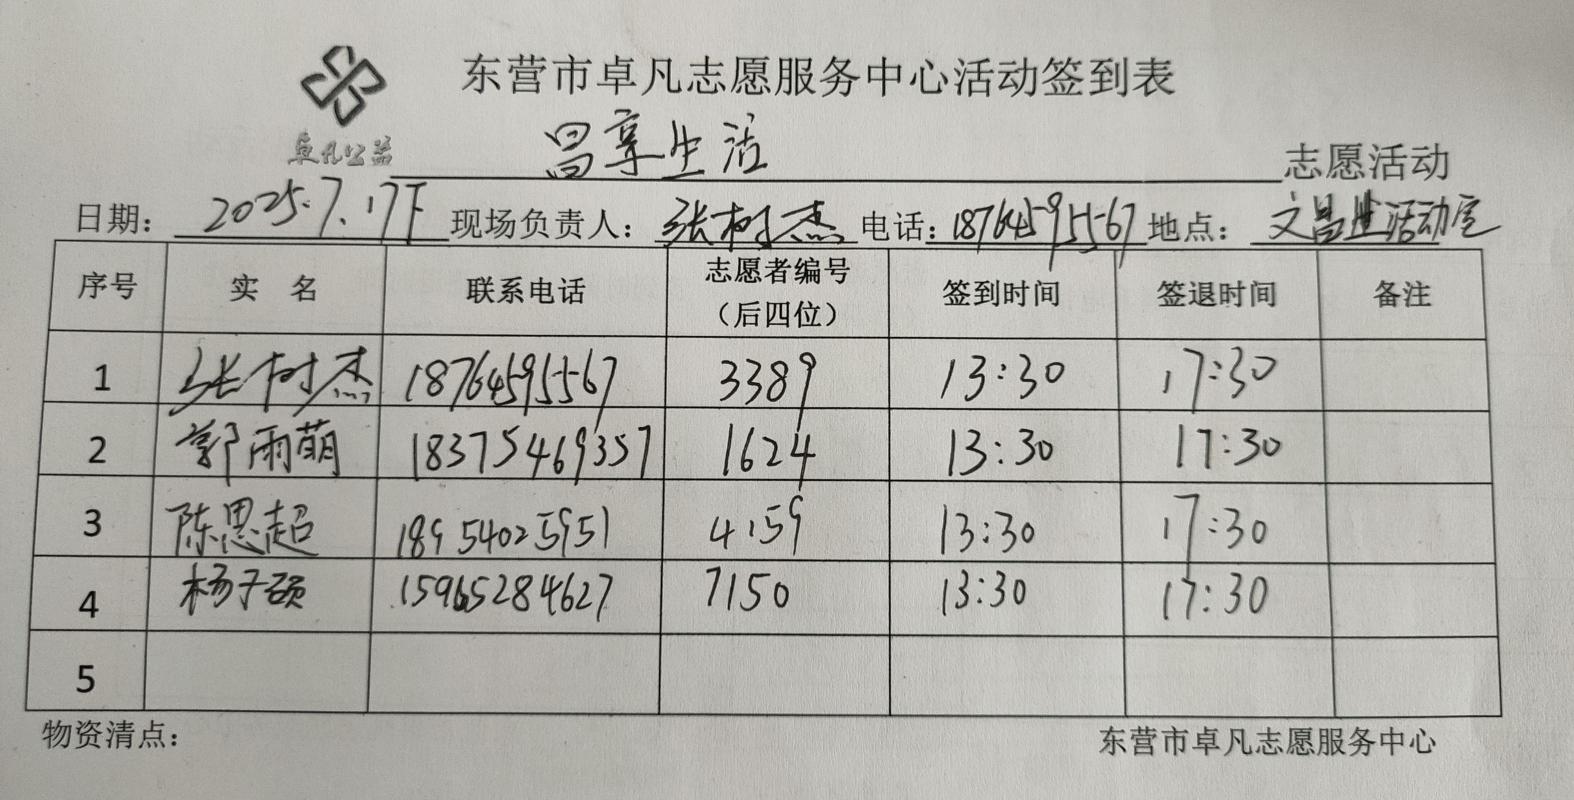 东营市卓凡志愿服务中心活动签到表
卓凡公益
昌享生活 志愿活动
日期： 2025.7.17下 现场负责人： 张树杰 电话： 18764595567 地点： 文昌 活动室
序号 实 名 联系电话 志愿者编号（后四位） 签到时间 签退时间 备注
1 张树杰 18764595567 3389 13:30 17:30
2 郭雨萌 18375469357 1624 13:30 17:30
3 陈思超 18954025951 4159 13:30 17:30
4 杨子硕 15965284627 7150 13:30 17:30
5
物资清点： 东营市卓凡志愿服务中心